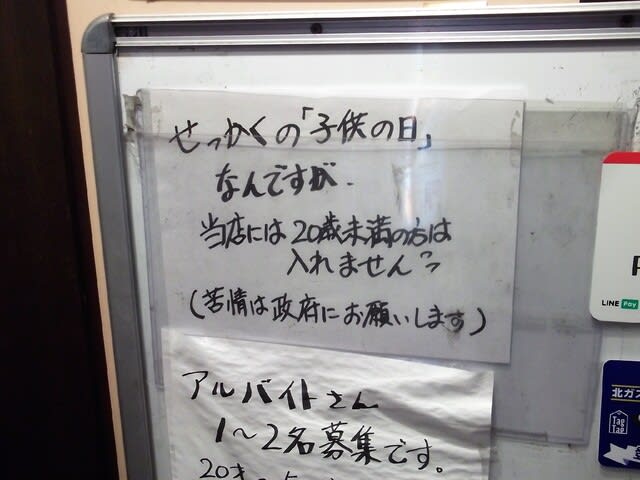 せっかくの「子供の日」
なんですが、
当店には20歳未満の方は
入れません〜
(苦情は政府にお願いします)
アルバイトさん
1〜2名募集です。
LINE Pay
北ガス
Tag
Tag